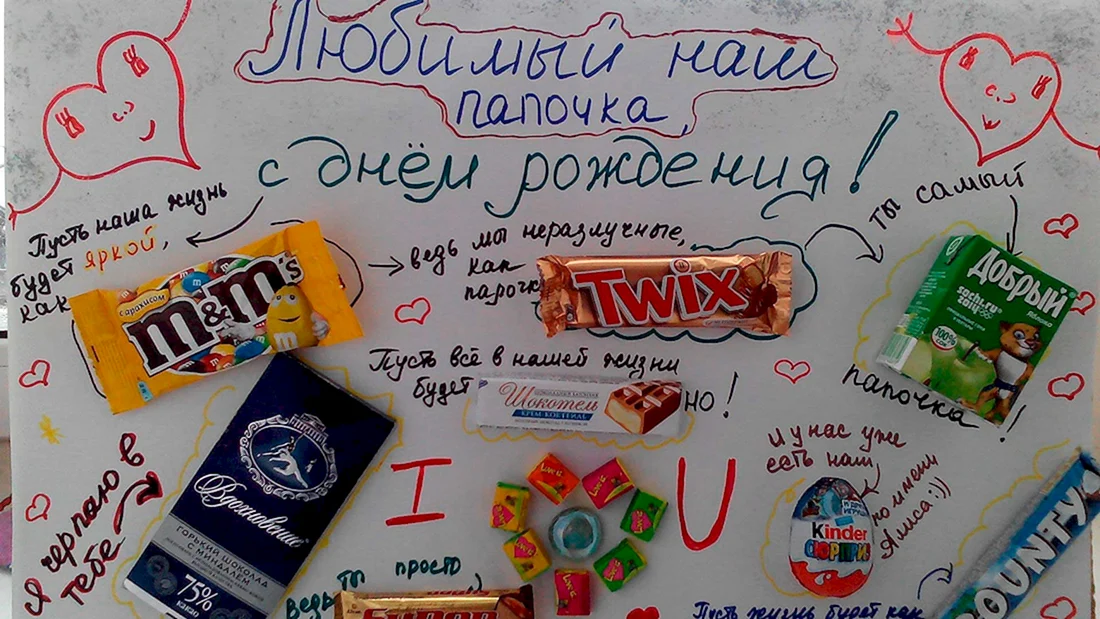 Любимый наш
папочка,
с днём рождения!
Пусть наша жизнь
будет яркой,
как
с арахисом
m&m's
ведь мы неразлучные,
как
парочка
TWIX
ты самый
Добрый
яблоко
sochi.ru
2014
100%
папочка!
Пусть всё в нашей жизни
будет
Шокотель
КРЕМ-КОКТЕЙЛЬ
но!
Я черпаю в
тебе
Вдохновение
ГОРЬКИЙ ШОКОЛАД
С МИНДАЛЕМ
75%
какао
I U
LOVE IS
И у нас уже
есть наш
Kinder
СЮРПРИЗ
по имени
Алиса:))
ведь ты просто
Пусть жизнь будет как
BOUNTY